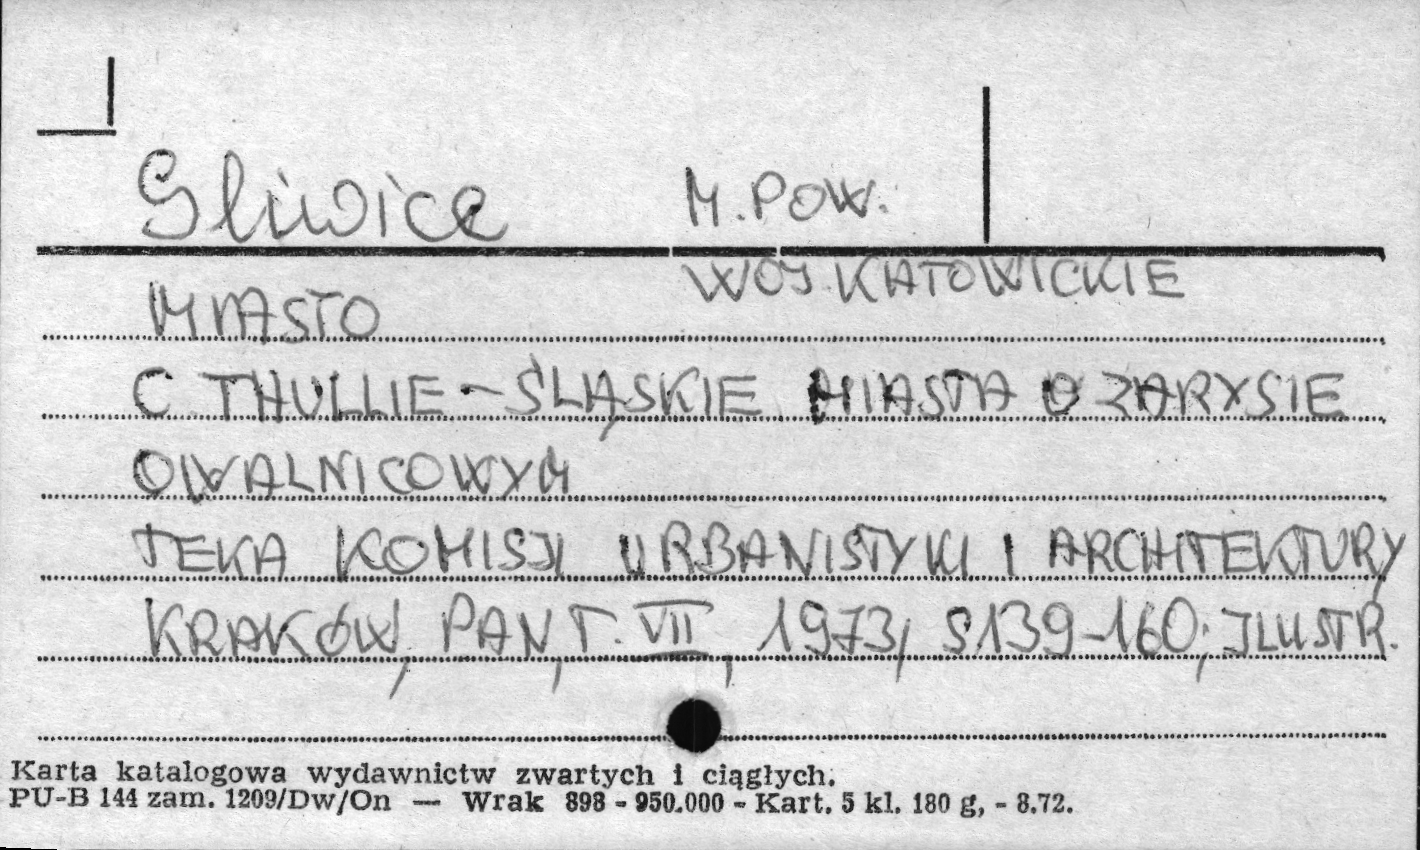 Gliwice M. POW.
WOJ. KATOWICKIE
MIASTO
C THULLIE - ŚLĄSKIE MIASTA O ZARYSIE
OWALNICOWYM
TEKA KOMISJI URBANISTYKI I ARCHITEKTURY
KRAKÓW, PAN, T. VII, 1973, S.139-160; ILUSTR.
Karta katalogowa wydawnictw zwartych i ciągłych.
PU-B 144 zam. 1209/Dw/On — Wrak 898 - 950.000 - Kart. 5 kl. 180 g, - 8.72.